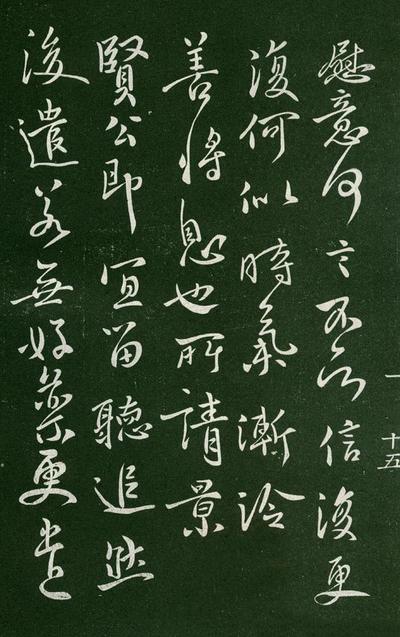 慰意何言不知信後更
復何似時氣漸冷
善將息也所請景
賢公即宜留聽追然
後遣若無好藥更遣
一 十五